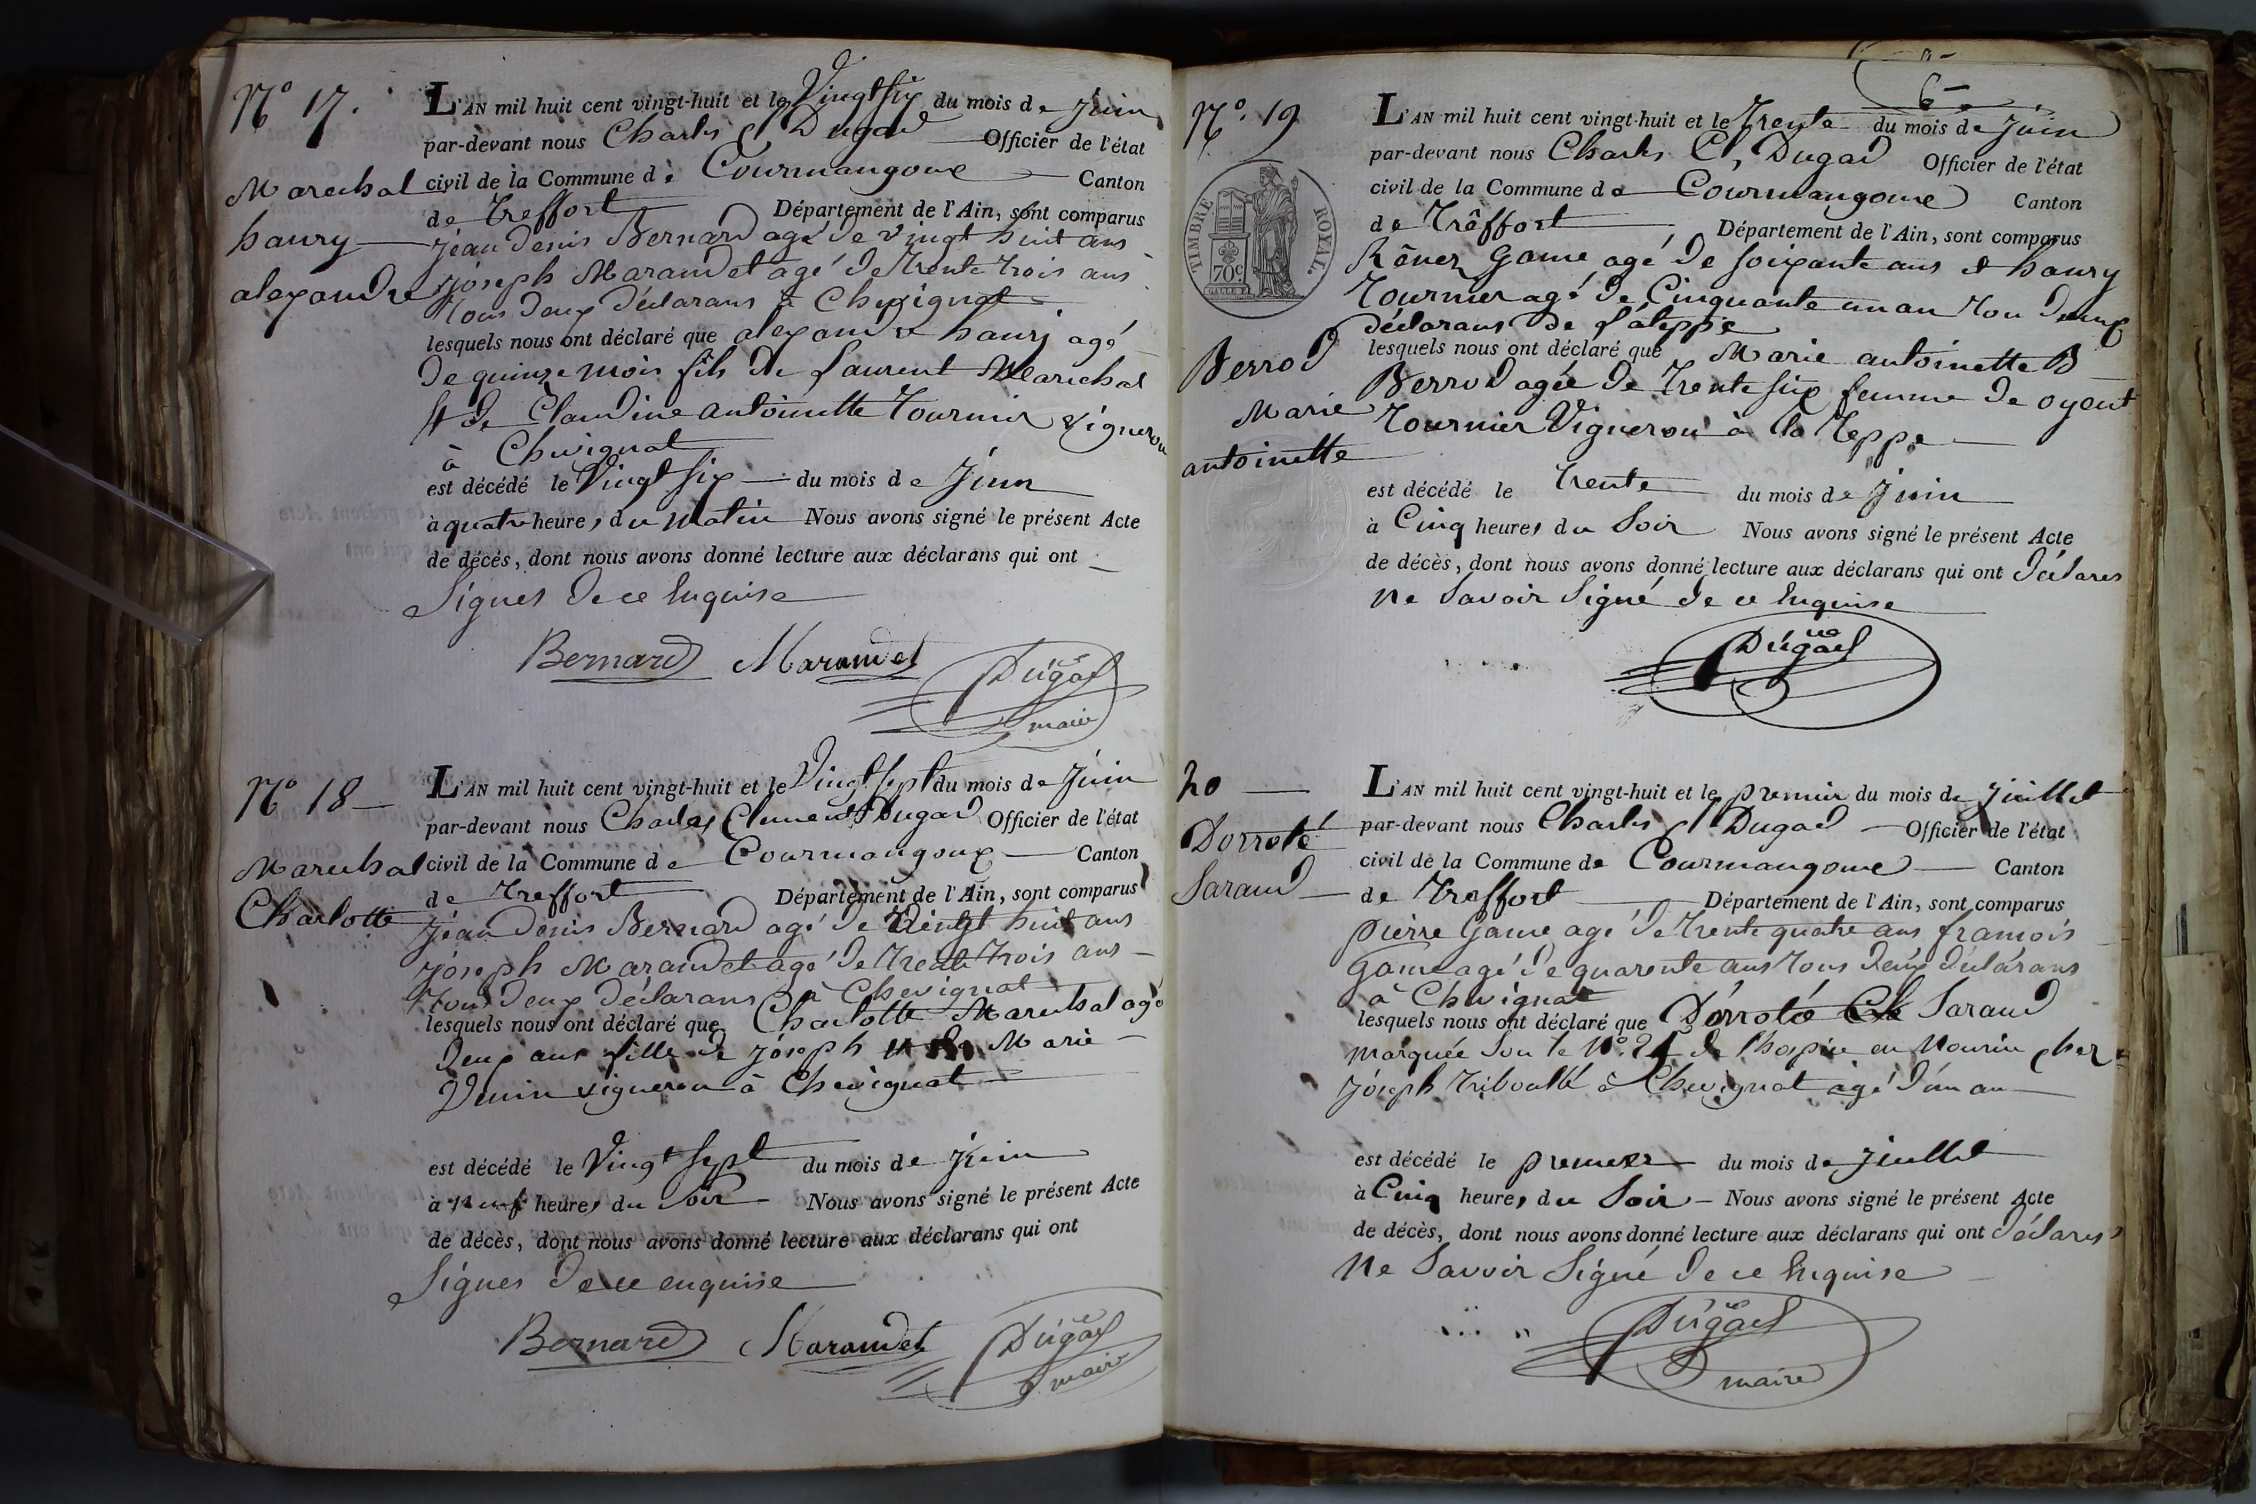 N.º 17.
Marechal
haury
alexandre
L'AN mil huit cent vingt-huit et le Vingt six du mois de juin
par-devant nous Charles Cl Dugad Officier de l'état
civil de la Commune de Courmangoux Canton
de Treffort Département de l'Ain, sont comparus
jean Denis Bernard agé de vingt huit ans
joseph Marandet agé de trente trois ans
tous deux déclarans à Chevignat
lesquels nous ont déclaré que alexandre haurj agé
de quinze mois fils de Laurent Marechal
et de Claudine antoinette Tournier vigneron
à Chevignat
est décédé le Vingt six du mois de juin
à quatre heures du matin Nous avons signé le présent Acte
de décès, dont nous avons donné lecture aux déclarans qui ont
Signes de ce enquise
Bernard Marandet Dugad
maire
N.º 18
Marechal
Charlotte
L'AN mil huit cent vingt-huit et le Vingt sept du mois de juin
par-devant nous Charles Clement Dugad Officier de l'état
civil de la Commune de Courmangoux Canton
de Treffort Département de l'Ain, sont comparus
jean Denis Bernard agé de vingt huit ans
joseph Marandet agé de trente trois ans
tous deux déclarans à Chevignat
lesquels nous ont déclaré que Charlotte Marechal agé
deux ans fille de joseph et de Marie
vigneron à Chevignat
est décédé le Vingt sept du mois de juin
à neuf heures du Soir Nous avons signé le présent Acte
de décès, dont nous avons donné lecture aux déclarans qui ont
Signes de ce enquise
Bernard Marandet Dugad
maire
6
N.º 19
TIMBRE ROYAL.
70c
Berrod
Marie
antoinette
L'AN mil huit cent vingt-huit et le Trente du mois de juin
par-devant nous Charles Cl, Dugad Officier de l'état
civil de la Commune de Courmangoux Canton
de Trêffort Département de l'Ain, sont comparus
Game agé de soixante ans et haury
Tournier agé de Cinquante un an tou deux
déclarans de Lateppe
lesquels nous ont déclaré que Marie antoinette B
Berrod agée de trente six femme de oyent
Tournier Vigneron à la Teppe
est décédé le trente du mois de juin
à Cinq heures du Soir Nous avons signé le présent Acte
de décès, dont nous avons donné lecture aux déclarans qui ont déclares
Ne Savoir Signé de ce Enquise
Dugad
20
Dorroté
Saraud
L'AN mil huit cent vingt-huit et le premier du mois de juillet
par-devant nous Charles Cl Dugad Officier de l'état
civil de la Commune de Courmangoux Canton
de Treffort Département de l'Ain, sont comparus
pierre Game agé de trente quatre ans francois
Game agé de quarente ans tous deux déclarans
à Chevignat
lesquels nous ont déclaré que Dorroté Saraud
marquée Sou le Nº. de l'hospice en Nourice chez
joseph Triboullet à Chevignat agé d'un an
est décédé le premier du mois de juillet
à Cinq heures du Soir Nous avons signé le présent Acte
de décès, dont nous avons donné lecture aux déclarans qui ont déclares
Ne Savoir Signé de ce Enquise
Dugad
maire